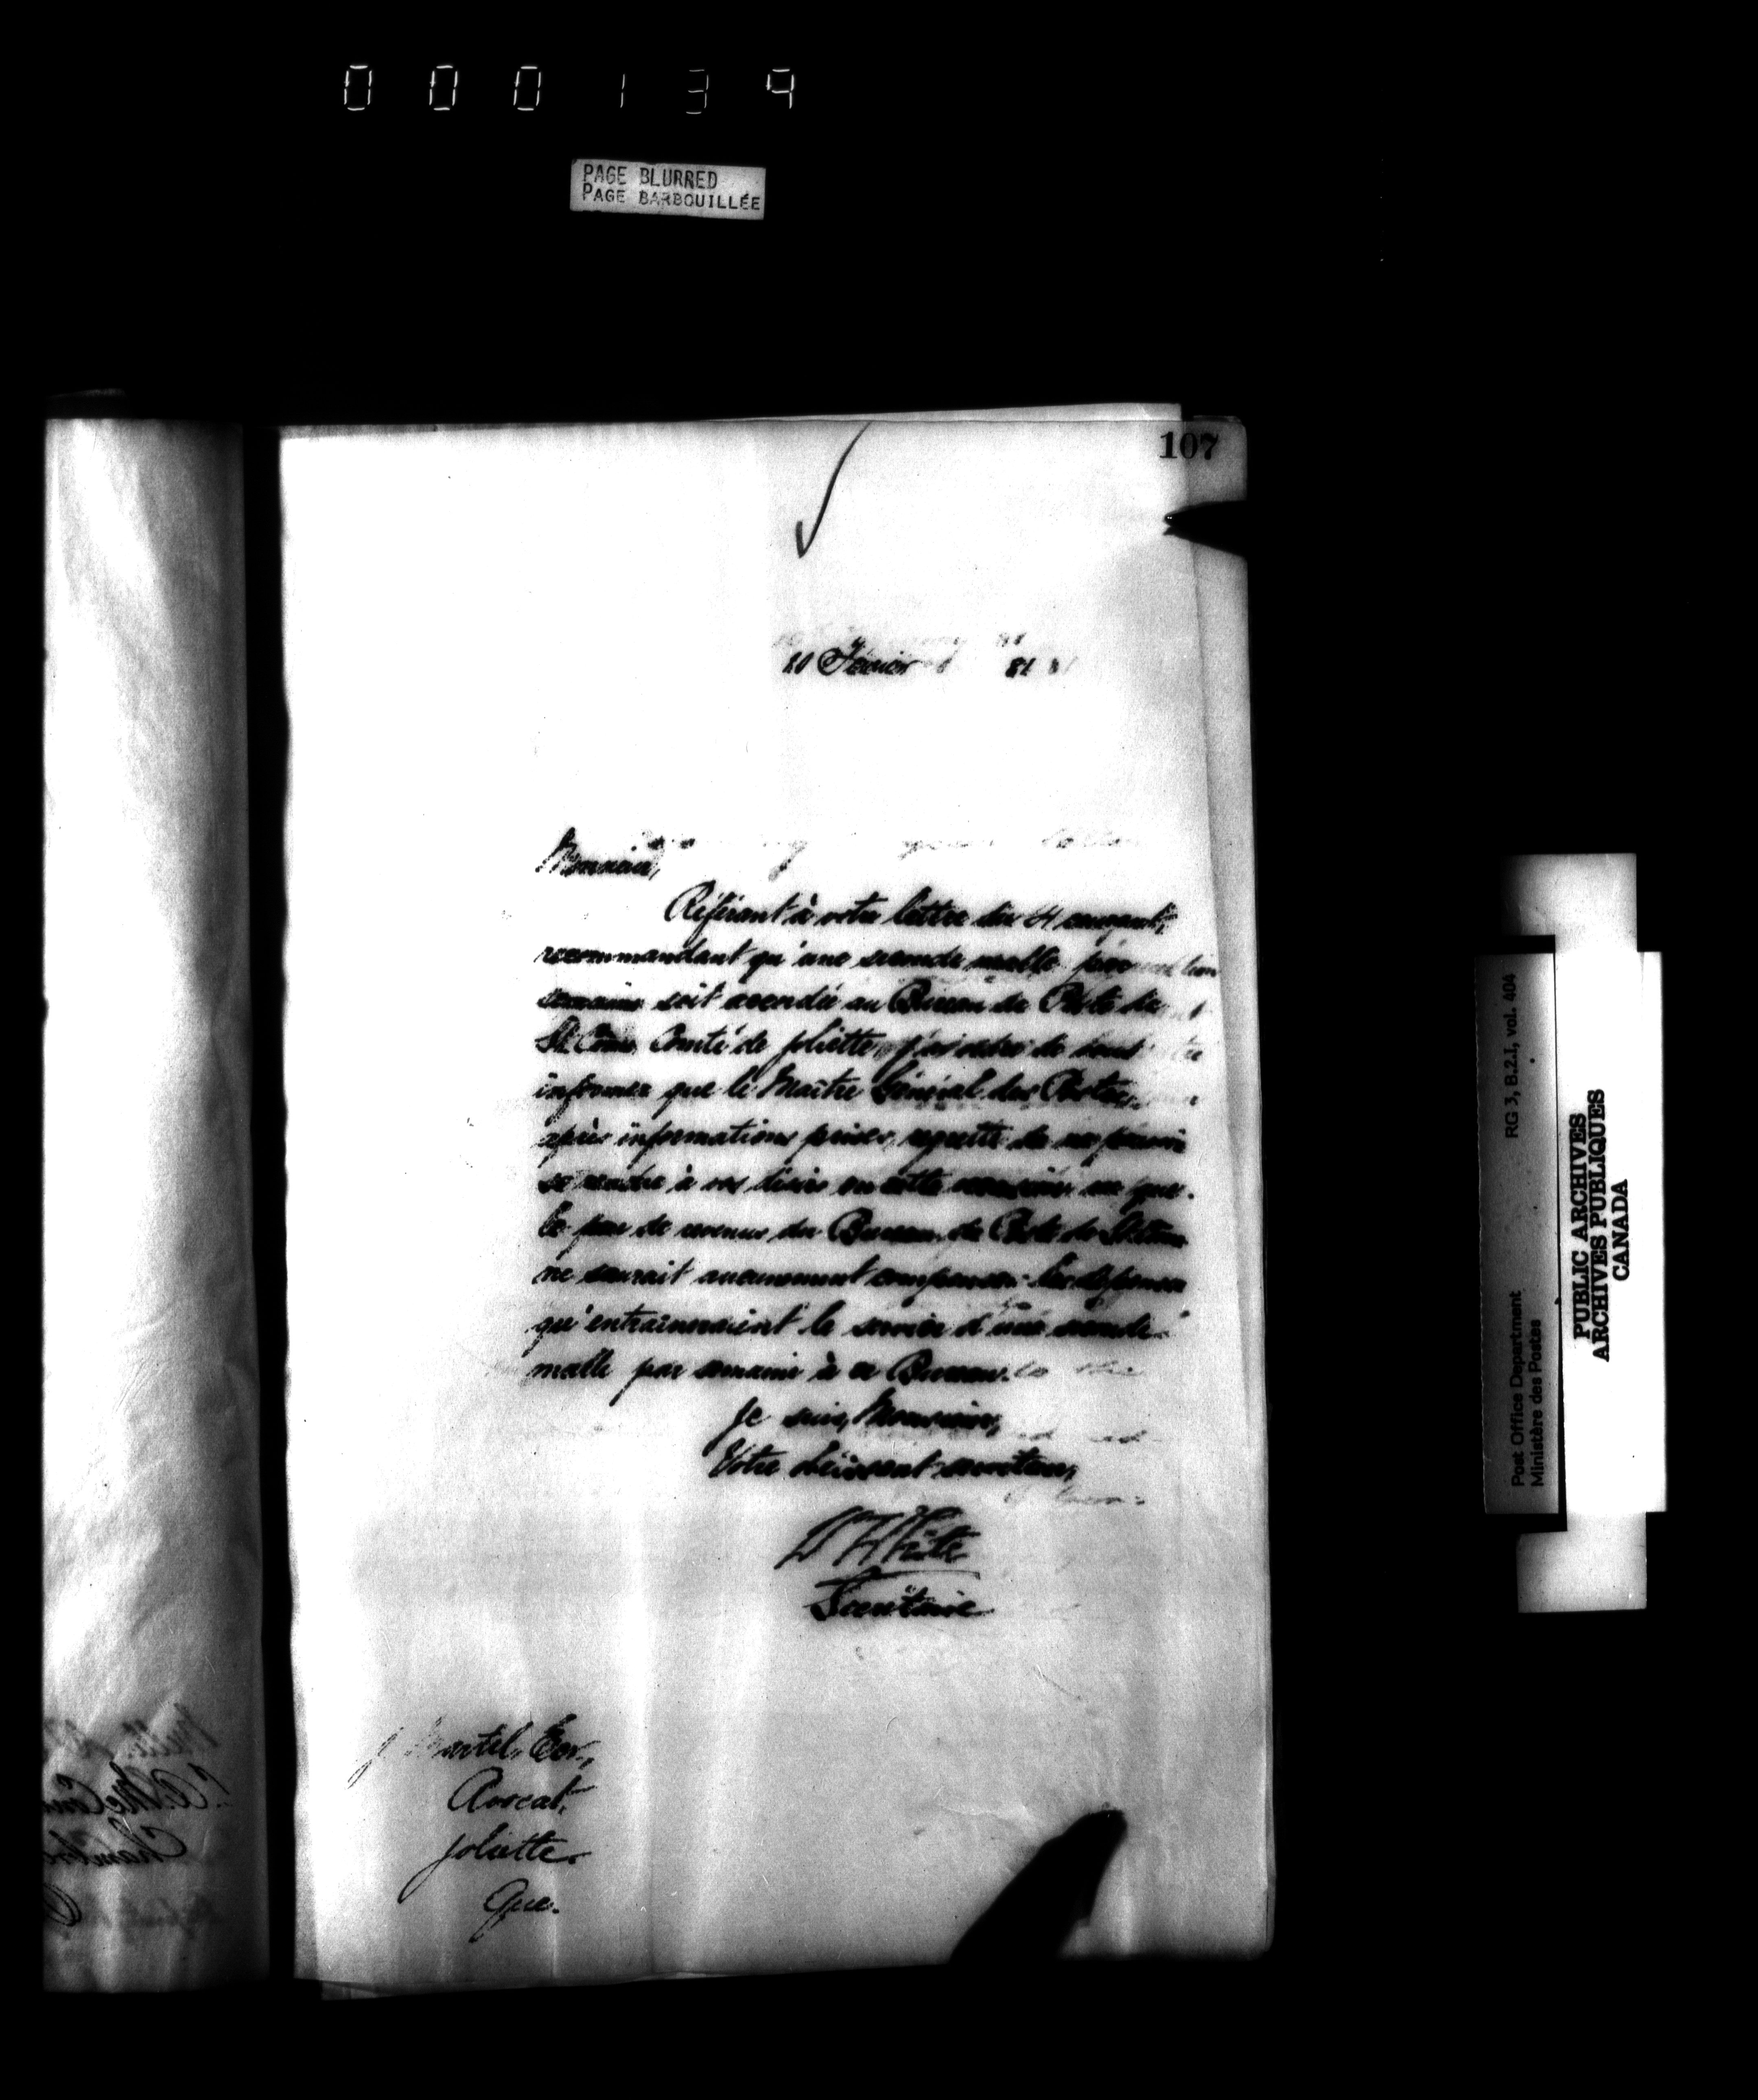 000139
PAGE BLURRED
PAGE BARBOUILLÉE
107
Février 81
Monsieur,
Référant à votre lettre du 4 courant,
recommandant qu'une seconde malle par
semaine soit accordée au Bureau de Poste de
St. Come, Comté de Joliette, j'ai ordre de vous
informer que le Maître Général des Postes,
après informations prises, regrette de ne pouvoir
se rendre à vos désirs en cette
le peu de revenus du Bureau de Poste de St. Come
ne saurait aucunement compenser les dépenses
qu'entraineraient le service d'une seconde
malle par semaine à ce Bureau.
Je suis, Monsieur,
Votre obéissant serviteur,
White
Secrétaire
J Martel, Ecr.,
Avocat,
Joliette.
Que.
RG 3, B.2.I, vol. 404
Post Office Department
Ministère des Postes
PUBLIC ARCHIVES
ARCHIVES PUBLIQUES
CANADA